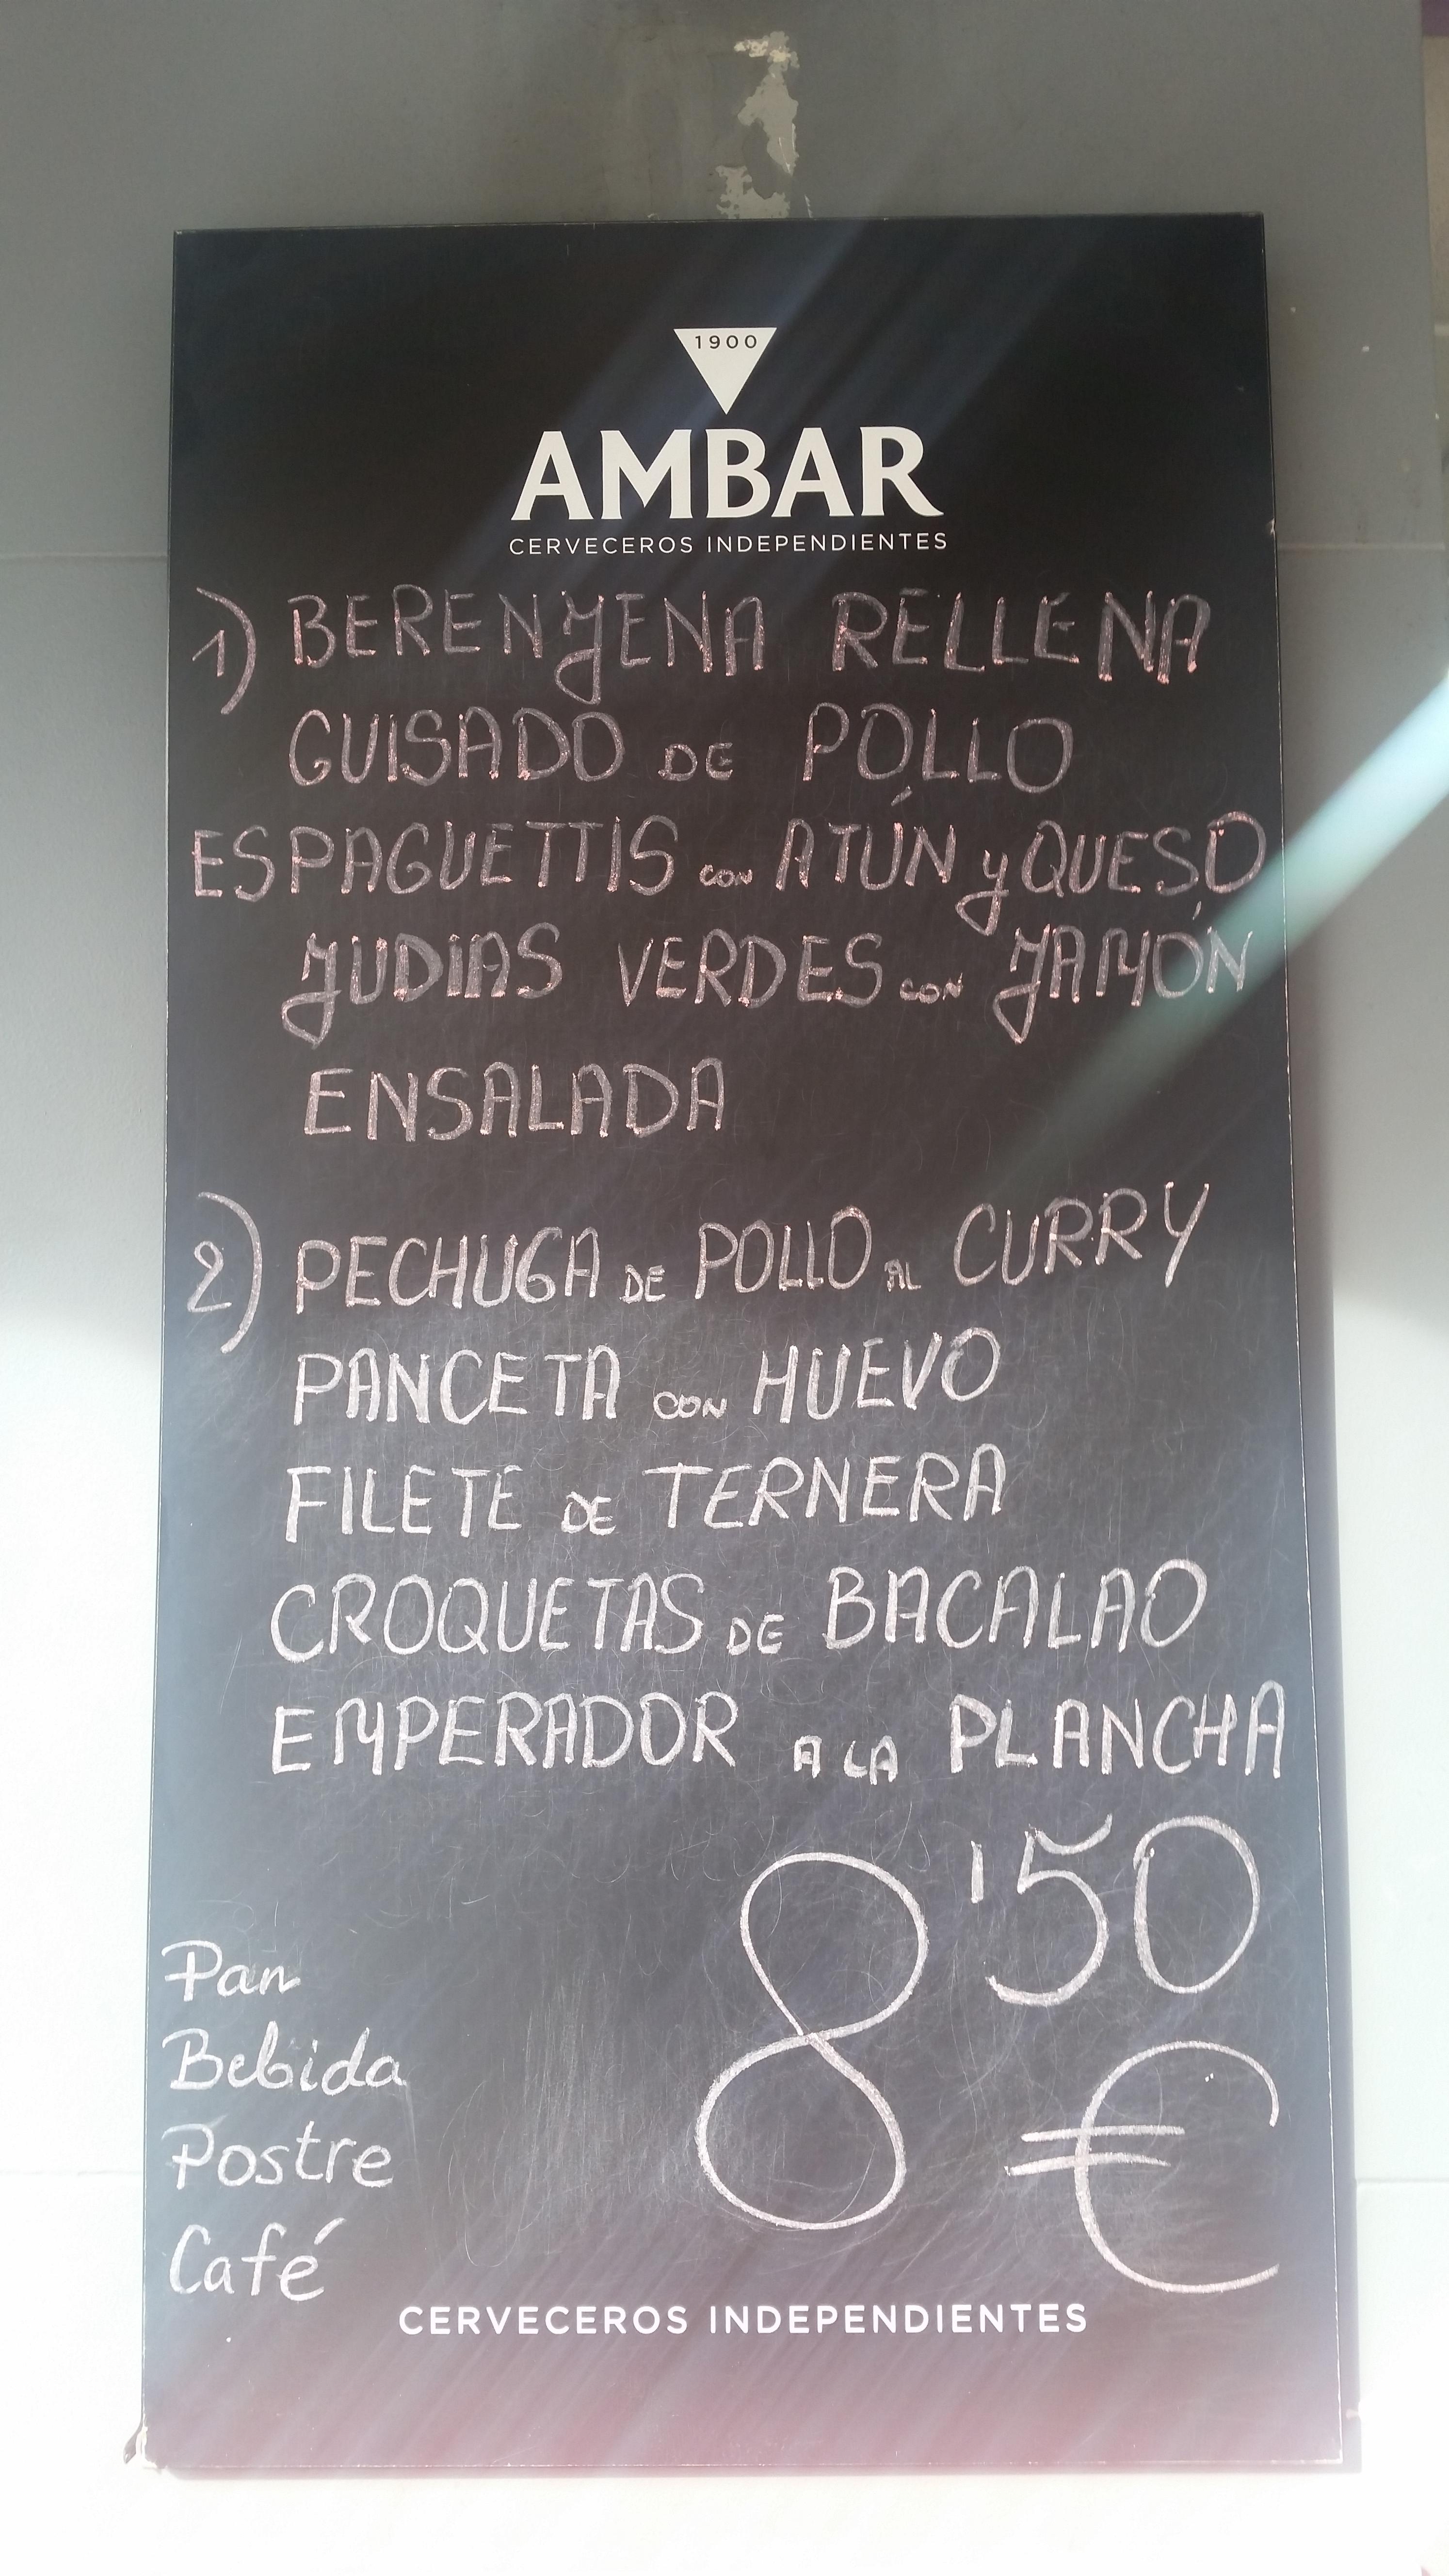 1900
AMBAR
CERVECEROS INDEPENDIENTES
1) BERENJENA RELLENA
GUISADO DE POLLO
ESPAGUETTIS CON ATÚN y QUESO
JUDIAS VERDES CON JAMÓN
ENSALADA
2) PECHUGA DE POLLO AL CURRY
PANCETA CON HUEVO
FILETE DE TERNERA
CROQUETAS DE BACALAO
EMPERADOR A LA PLANCHA
8'50 €
Pan
Bebida
Postre
Café
CERVECEROS INDEPENDIENTES